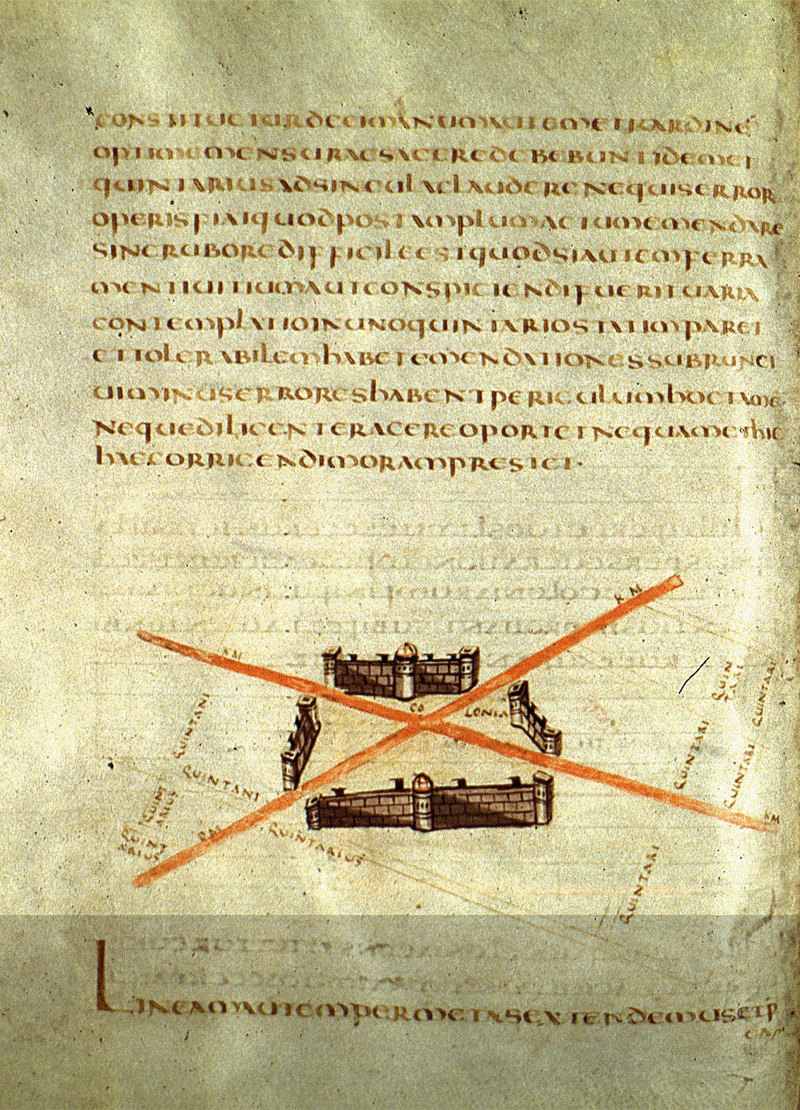 CONSTITUETUR DECIMANUM AUTEM ET KARDINE
OPTIME MENSURAE SACERE DEBEBUNT IDEM ET
QUINTARIUS AD SINGULA CLAUDERE NE QUIS ERROR
OPERIS FIAT QUOD POST AMPLUM ACTUM EMENDARE
SINE RUBORE DIFFICILE EST QUOD SI AUTEM FERRA
MENTI UITIUM AUT CONSPICIENDI FUERIT UARIA
CONTEMPLATIO IN UNO QUINTARIO STATIM PARET
ET TOLERABILEM HABET EMENDATIONES SUBRUNCI
UI MINUS ERRORES HABENT PERICULUM HOC TAME
NEQUE DILIGENTER AGERE OPORTET NE QUAM HIC
HAE CORRIGENDI MORAM PRESTET.
KM
COLONIA
QUIN
TARI
QUINTARI
QUINTANI
QUINTARI
QUINTARI
QUINTANI
QUINTARIUS
KM
QUINTARI
LINEAM AUTEM PER METAS EXTENDEMUS ET P